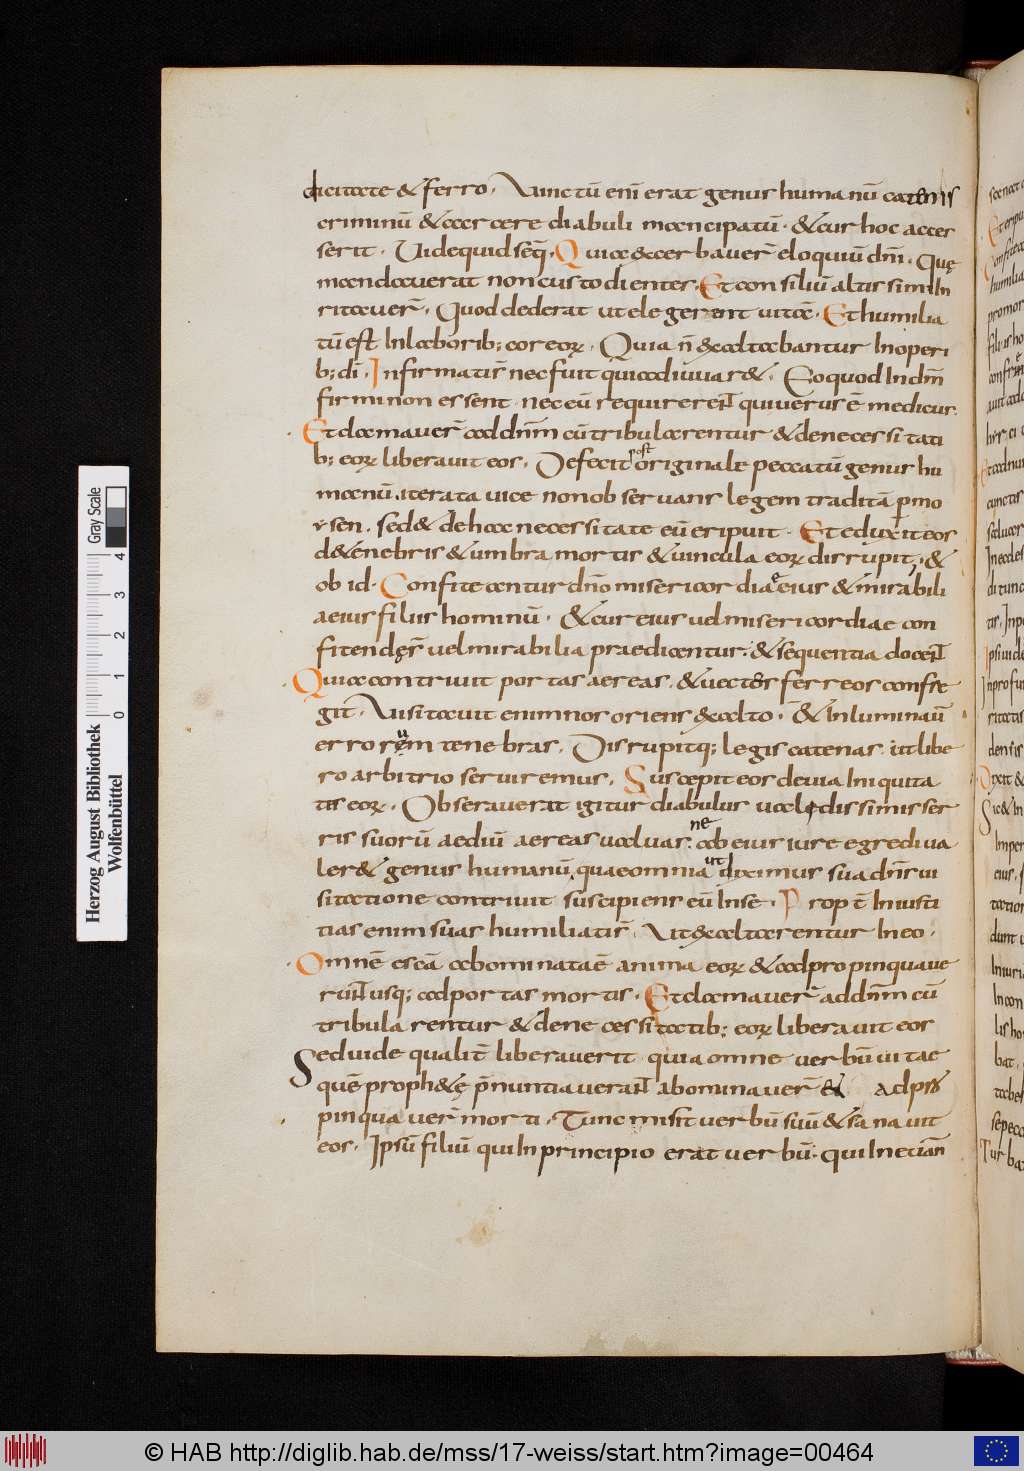 dicitate & ferro. Vinctū enī erat genus humanū catenis
criminū & carcere diabuli mancipatū. & cur hoc acces
serit. Vide quid seq̄. Quia exacerbaver̄ eloquiū dn̄i. Quę
mandaverat non custodientes. Et consiliū altissimi In
ritaver̄. Quod dederat ut elegerent vitā. Et humilia
tū est In laborib; cor eoꝝ. Quia n̄ exaltabantur In operi
b; dī. Infirmati s̄ nec fuit qui adiuvar&. Eo quod In dn̄m
firmi non essent nec eū requirerent qui verus ē medicus.
Et clamaver̄ ad dn̄m cū tribularentur & de necessitati
b; eoꝝ liberavit eos. Defecit post originale peccatū genus hu
manū. iterata vice non ob servans legem traditā p mo
ysen. sed & de hac necessitate eū eripuit. Et eduxit eos
de tenebris & umbra mortis & vincula eoꝝ dirrupit. &
ob id. Confiteantur dn̄o misericordiae eius & mirabili
a eius filiis hominū. & cur eius vel misericordiae con
fitendę s̄ vel mirabilia praedicentur. & sequentia docent
Quia contrivit portas aereas. & vectes ferreos confre
git. Visitavit enim nos oriens ex alto. & Inluminav̄
errorum tenebras. Disrupitq; legis catenas. ut libe
ro arbitrio serviremus. Suscepit eos de via Iniquita
tis eoꝝ. Observaverat igitur diabulus validissimis ser
ris suorū aediū aereas valvas. ne ab eius iure egredi va
ler& genus humanū, quae omnia ut diximus sua dn̄s vi
sitatione contrivit suscipiens eū In se. Propt̄ Iniusti
tias enim suas humiliati s̄. Ut exaltarentur In eo.
Omnē escā abominata ē anima eoꝝ & adpropinquave
runt usq; ad portas mortis. Et clamaver̄ ad dn̄m cū
tribularentur & de necessitatib; eoꝝ liberavit eos
Sed vide qualit̄ liberaverit quia omne verbū vitae
quē proph&ę p̄nuntiaverant abominaver̄ & adpro
pinquaver̄ morti. Tunc misit verbū suū & sanavit
eos. Ipsū filiū qui In principio erat verbū. qui In etiam
Herzog August Bibliothek
Wolfenbüttel
Gray Scale
0 1 2 3 4
© HAB http://diglib.hab.de/mss/17-weiss/start.htm?image=00464